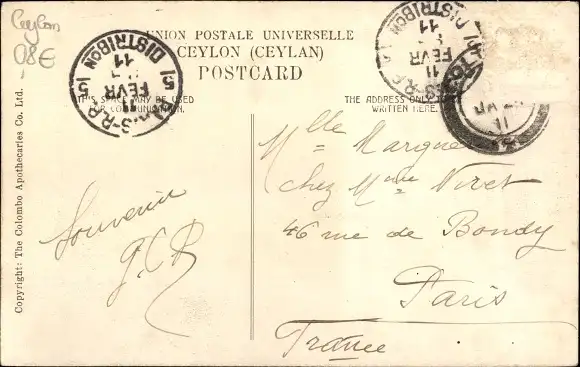 Ceylon
08€
UNION POSTALE UNIVERSELLE
CEYLON (CEYLAN)
POSTCARD
THIS SPACE MAY BE USED
FOR COMMUNICATION.
THE ADDRESS ONLY TO BE
WRITTEN HERE.
DISTRIBON
11
FEVR
11
5
5
DISTRIBON
11
FEVR
11
Copyright: The Colombo Apothecaries Co. Ltd.
Souvenir
Mlle
chez Mme Viret
46 rue de Bondy
Paris
France